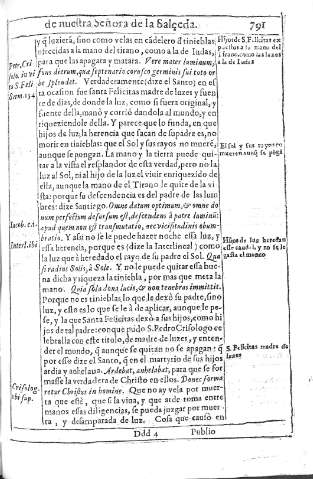 de nuestra Señora de la Salceda. 791
y q̃ luziera, sino como velas en cãdelero d̃ tinieblas
ofrecidas a la mano del tirano, como a la de Iudas,
para que las apagara y matara. Vere mater luminum,
Petr. Cri
sus dierum, qua septenario corusco germinis sui toto or
be splendet. Verdaderamente (dize el Santo) en es
ta ocasion fue santa Felicitas madre de luzes y fuen
te de dias, de donde la luz, como si fuera original, y
fuente della, manò y corriò dandola al mundo, y en
riqueziendole della. Y parece que lo funda, en que
hijos de luz, la herencia que sacan de su padre es, no
morir en tinieblas: que el Sol y sus rayos no muerẽ,
aunque se pongan. La mano y la tierra puede qui-
tar a la vista el resplandor de esta verdad, pero no la
luz al Sol, ni al hijo de la luz el viuir enriquezido de
ella, aunque la mano del Tirano le quite de la vi-
sta: porque su descendencia es del padre de las lum
bres: dize Santiago. Omne datum optimum, & omne do
num perfectum desursum est, descendens à patre luminũ:
Iacob. c. 1.
apud quem non est transmutatio, nec vicissitudinis obum-
bratio. Y assi no le puede hazer noche essa luz, y
Interl. ibi
essa herencia, porque es (dize la Interlineal) como
la luz que à heredado el rayo de su padre el Sol. Qua
si radius Solis, à Sole. Y no le puede quitar essa bue-
na dicha y riqueza la tiniebla, por mas que meta la
mano. Quia sola dona lucis, & non tenebras immittit.
Porque no es tinieblas, lo que le dexò su padre, sino
luz, y essa es lo que se le à de aplicar, aunque le pe-
se, y la que Santa Felicitas dexò a sus hijos, como hi
jos de tal padre: con que pudo S. Pedro Crisologo ce
lebralla con este titulo, de madre de luzes, y enten-
der el mundo, q̃ aunque se quitan no se apagan: q̃
por esso dize el Santo, q̃ en el martyrio de sus hijos
ardia y anhelaua. Ardebat, anhelabat, para que se for
masse la verdadera de Christo en ellos. Donec forma
Crisolog.
ibi sup.
retur Christus in homine. Que no ay vela por muer-
ta que estè, que si la vina, y que arde toma entre
manos essas diligencias, se pueda juzgar por muer-
ta, y desamparada de luz. Cosa que causò en
El Sol y sus rayos no
Hijos de luz heredan
S. Felicitas madre de
luzes
Ddd 4 Publio